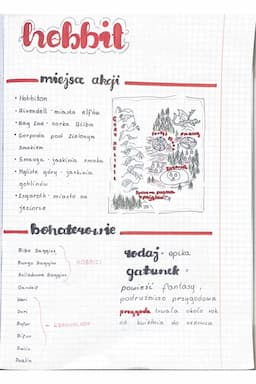 hobbit
miejsca akcji
• Hobbiton
• Rivendell - miasto elfów
• Bag End - norka Bilba
• Gospoda pod Zielonym
Smokiem
• Smauga - jaskinia smoka
• Mgliste góry - jaskinia
goblinów
• Esgaroth - miasto na
jeziorze
bohaterowie
Bilbo Baggins
Bungo Baggins
Belladonna Baggins
HOBBICI
Gandalf
Nori
Dori
Bofur
Bifur
KRASNOLUDY
Balin
Dwalin
rodzaj - epika
gatunek -
powieść fantasy,
podróżniczo przygodowa
przygoda trwała około rok
od kwietnia do czerwca